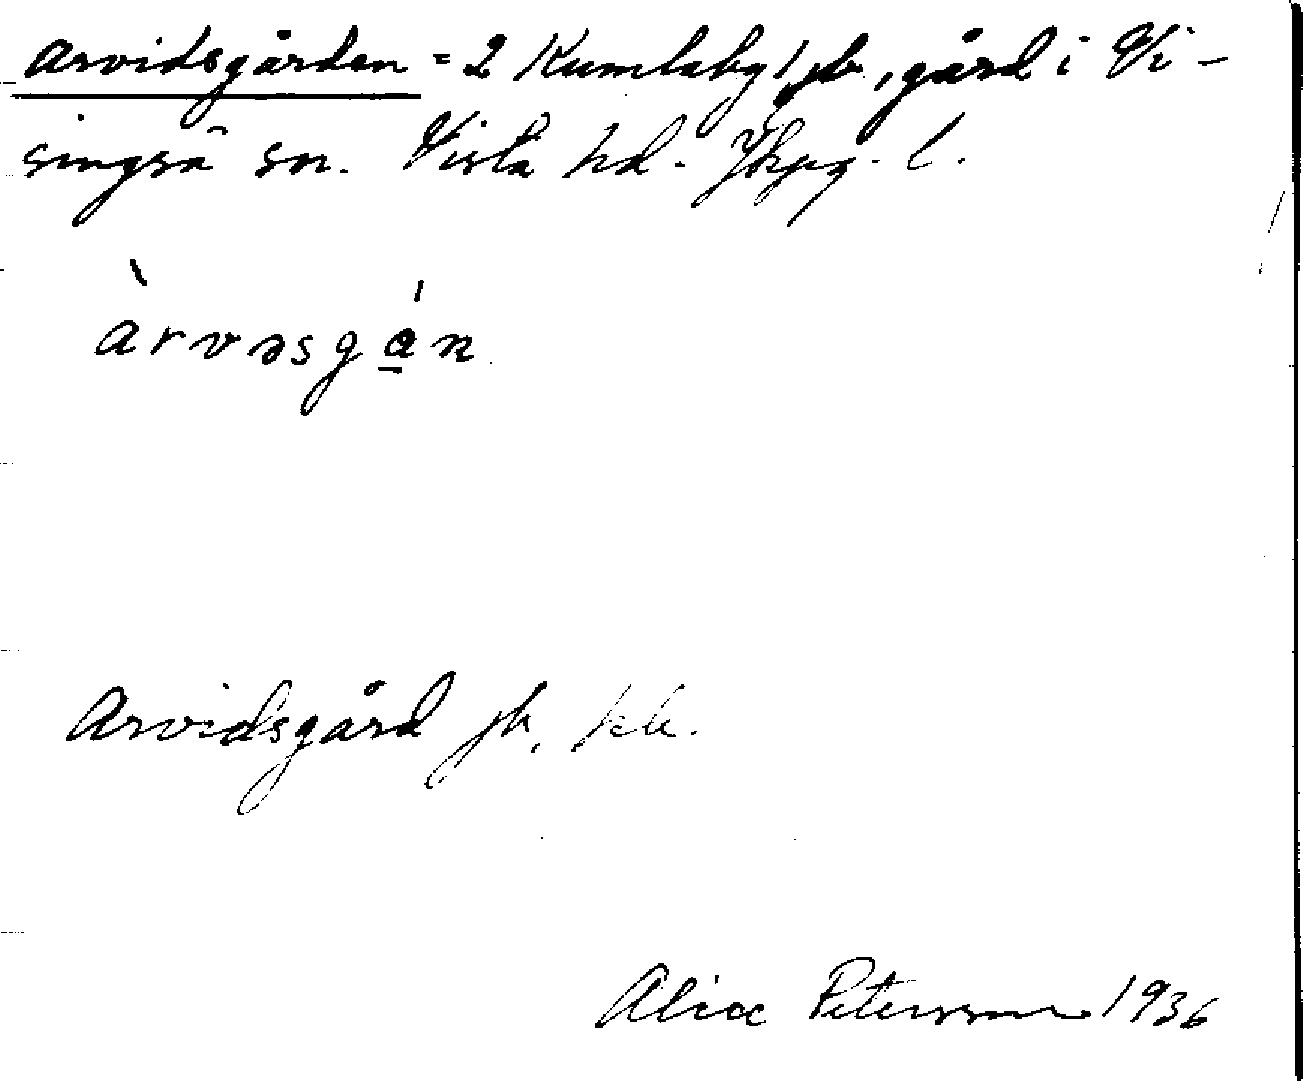 Arvidsgården = 2 Kumlaby 1 jb., gård i Vi-
singsö sn. Vista hd. Jkpg. l.
àrvəsgán
Arvidsgård jb, kk.
Alice Petersson 1936